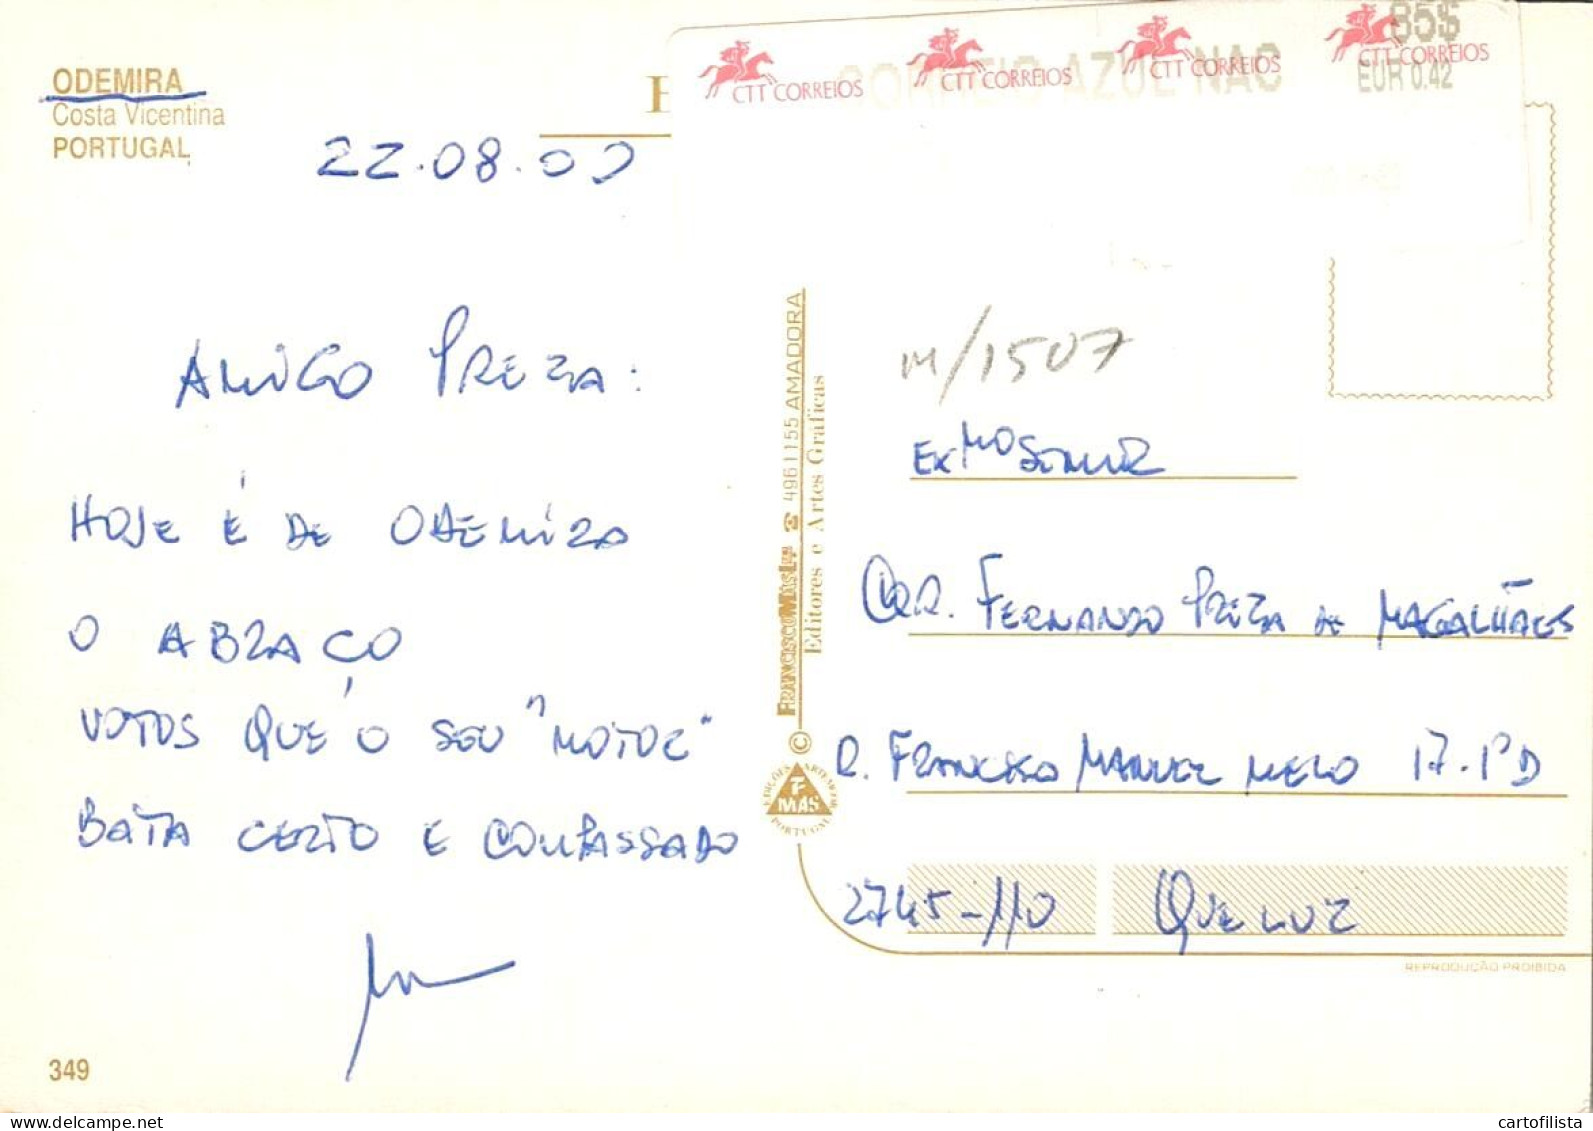 ODEMIRA
Costa Vicentina
PORTUGAL
22.08.00
CTT CORREIOS CTT CORREIOS CTT CORREIOS CTT CORREIOS
CORREIO AZUL NAC
85$
EUR 0.42
AMIGO PREZA:
HOJE É DE ODEMIRA
O ABRAÇO
VOTOS QUE O SEU "MOTOR"
BATA CERTO E COMPASSADO
349
FRANCISCO MÁS Lda ☎ 4961155 AMADORA
Editores e Artes Gráficas
©
EDIÇÕES ARTEMER
F
MÁS
PORTUGAL
m/1507
EXMO SENHOR
FERNANDO PREZA DE MAGALHÃES
R. FRANCISCO MANUEL MELO 17.1ºD
2745-110 QUELUZ
REPRODUÇÃO PROIBIDA
cartofilista.com